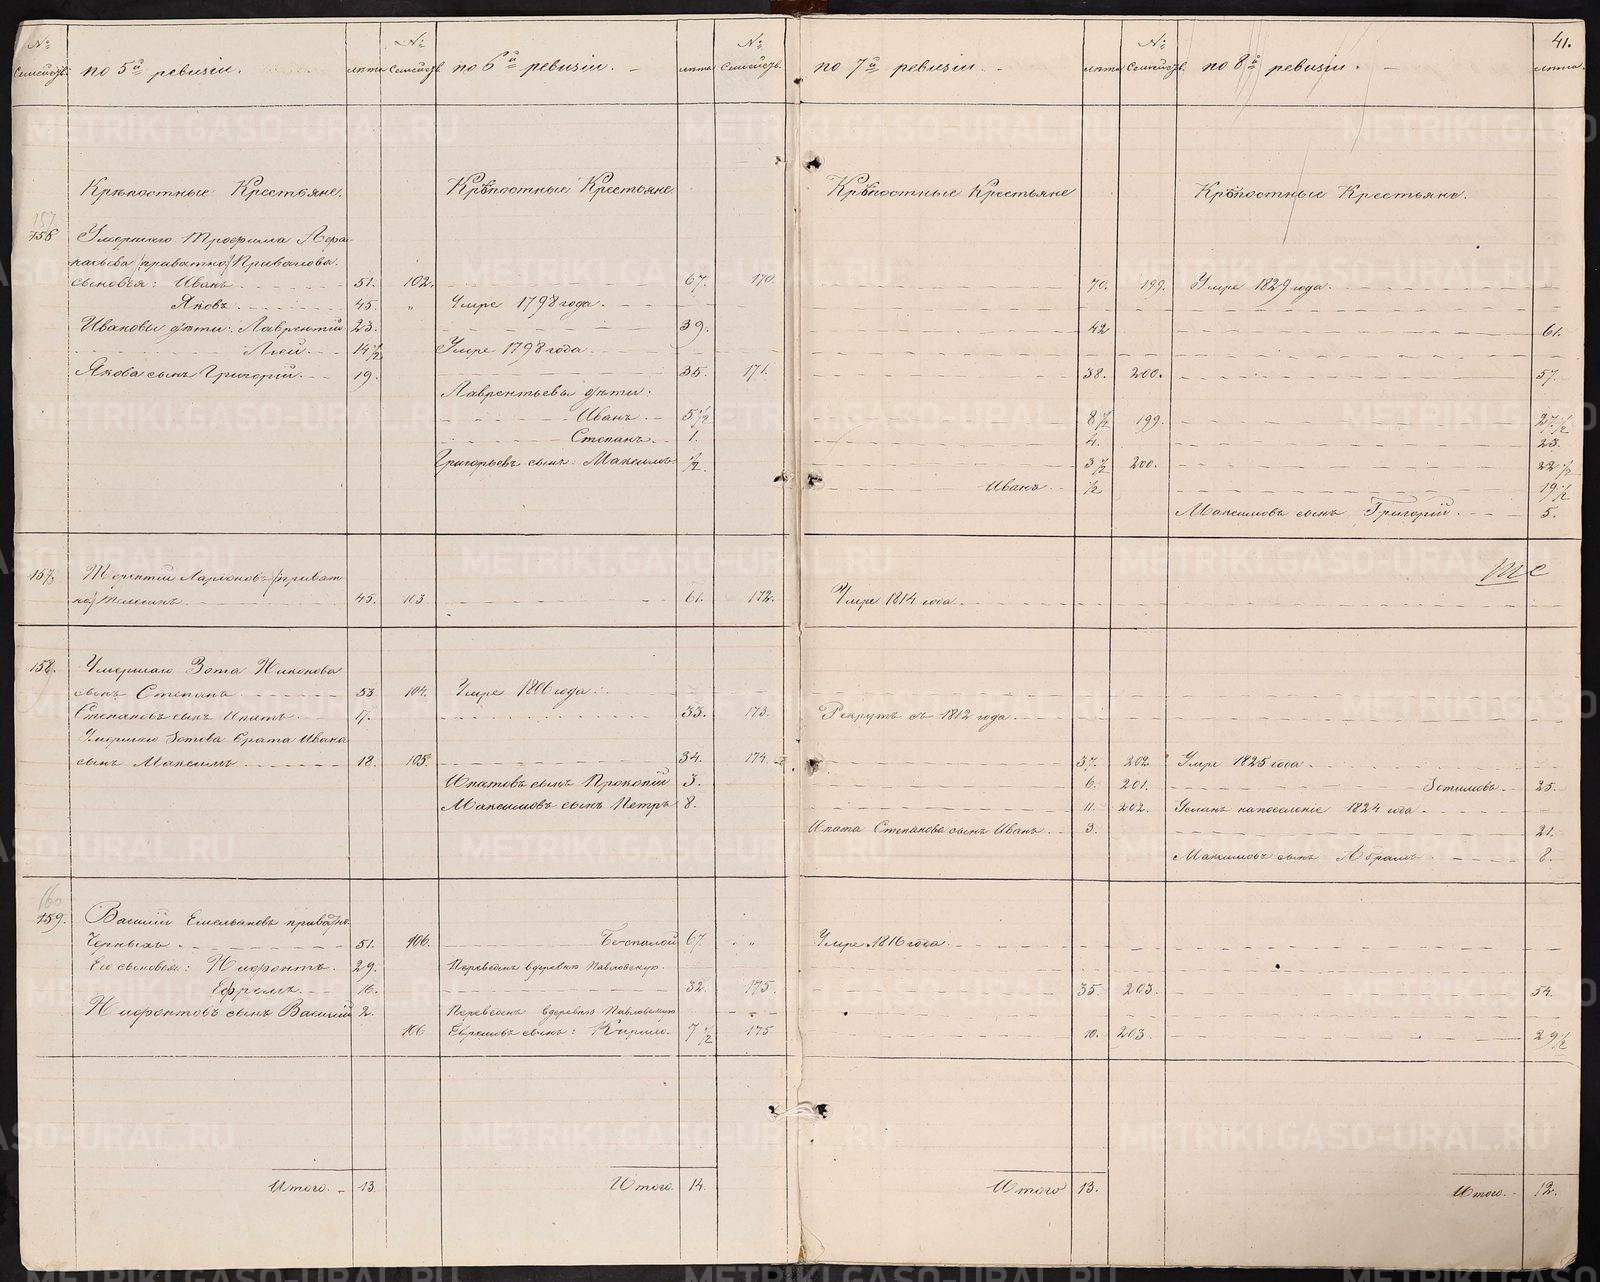 № семейств. по 5й ревизіи. лѣта № семейств. по 6й ревизіи. лѣта № семейств. по 7й ревизіи. лѣта № семейств. по 8й ревизіи. лѣта. 41.
Крѣпостные Крестьяне. Крѣпостные Крестьяне Крѣпостные Крестьяне Крѣпостные Крестьяне.
157
156 Умершаго Трофима Афона-
сьева /приватно/ Привалова.
сыновья: Иванъ 51. 102. 67. 170 70. 199. Умре 1829 года.
Яковъ 45. " Умре 1798 года.
Ивановы дѣти: Лаврентій 23. 39. 42 61.
14 1/2 Умре 1798 года
Якова сынъ Григорій. 19. 35. 171. 38. 200. 57.
Лаврентьевы дѣти:
Иванъ 5 1/2 8 1/2 199. 27 1/2
Степанъ 1. 4. 23.
Григорьевъ сынъ: Максимъ 1/2. 3 1/2 200. 22 1/2
Иванъ 1/2 19 1/2
Максимовъ сынъ Григорій. 5.
157. Терентій Ларіоновъ /приват
но/ 45. 103 61. 172. Умре 1814 года.
158. Умершаго Зота Никонова
сынъ Степанъ 53 104. Умре 1806 года.
Степановъ сынъ Ипатъ. 17. 33. 173. Рекрутъ съ 1812 года.
Умершаго Зотова брата Ивана
сынъ Максимъ 18. 105. 34. 174. 37. 202 Умре 1825 года.
Ипатовъ сынъ Прокопій 3. 6. 201. Зотимовъ. 25.
Максимовъ сынъ Петръ 8. 11. 202. Усланъ на поселеніе 1824 года
Ипата Степанова сынъ Иванъ 3. 21.
Максимовъ сынъ Абрамъ 8.
160
159. Василій Емельяновъ приватнъ
Черныхъ 51. 106. Безпалой 67. " Умре 1816 года.
Его сыновья: Нифонтъ. 29. Переведенъ въ деревню Павловскую.
Ефремъ 16. 32. 175. 35. 203. 54.
Нифонтовъ сынъ Василій 2. Переведенъ въ деревню Павловскую
106 Ефремовъ сынъ: Кирило. 7 1/2 175 10. 203. 29 1/2
Итого. 13. Итого. 14. Итого 13. Итого. 12.